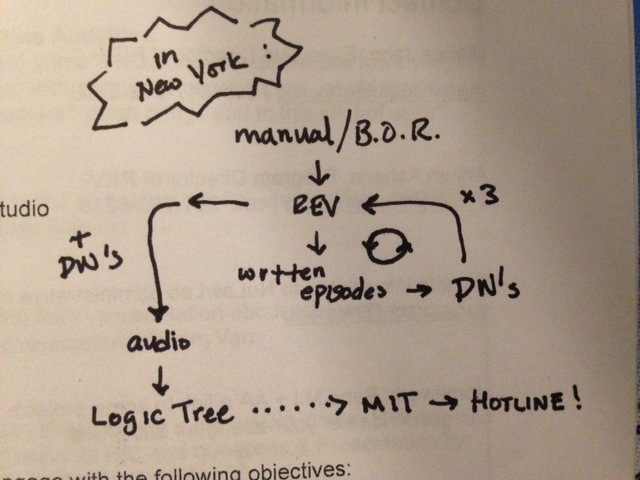 in
New York :
manual/B.O.R.
REV
x3
tudio
+
DN's
wrtten
episodes → DN's
audio
Logic Tree ......> MIT → HOTLINE!
ngage with the following objectives: